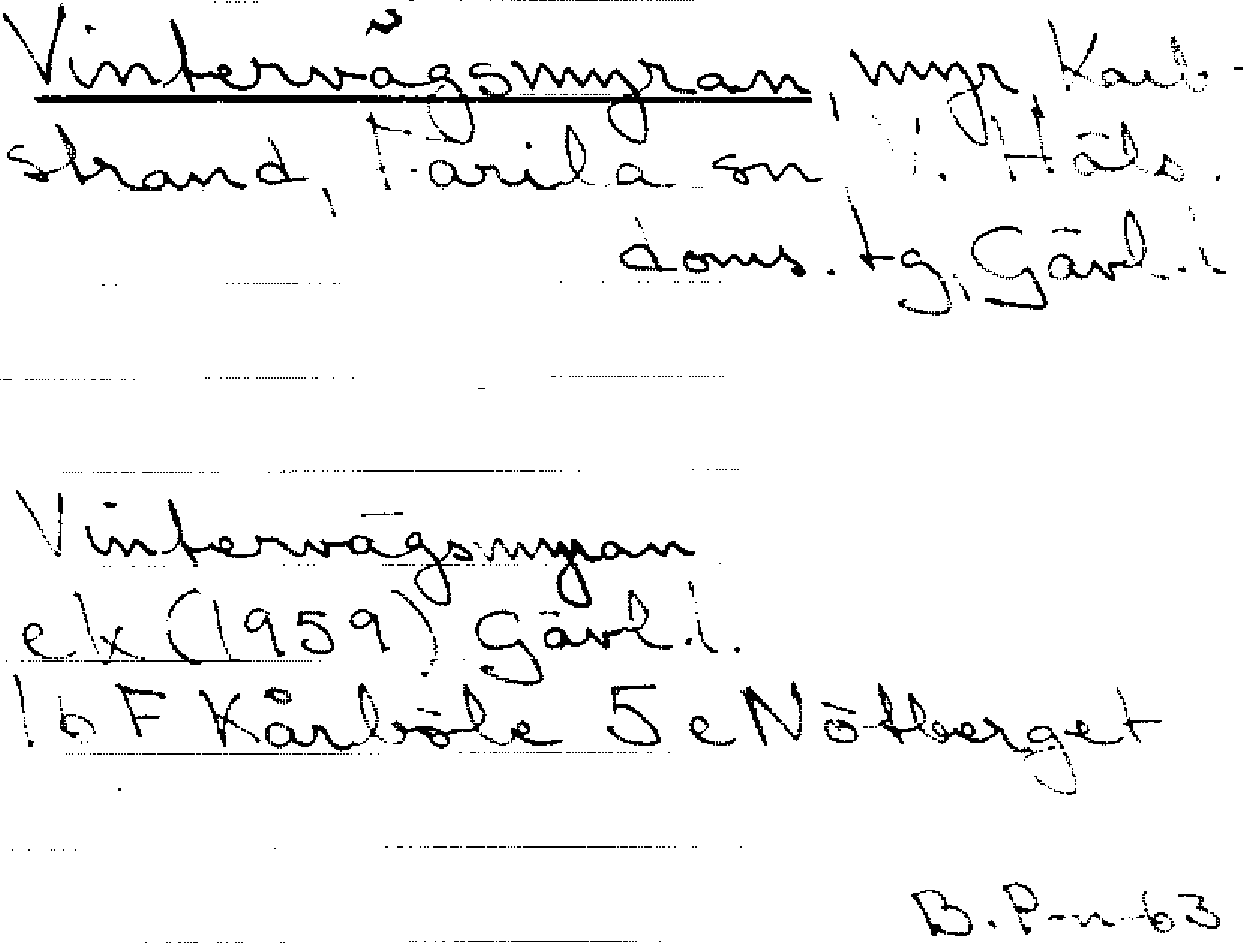 Vintervägsmyran, myr, Karl-
strand, Färila sn, V. Häls.
doms. tg, Gävl. l
Vintervägsmyran
ek (1959) Gävl. l.
16 F Kårböle 5 e Nötberget
B. P-n-63